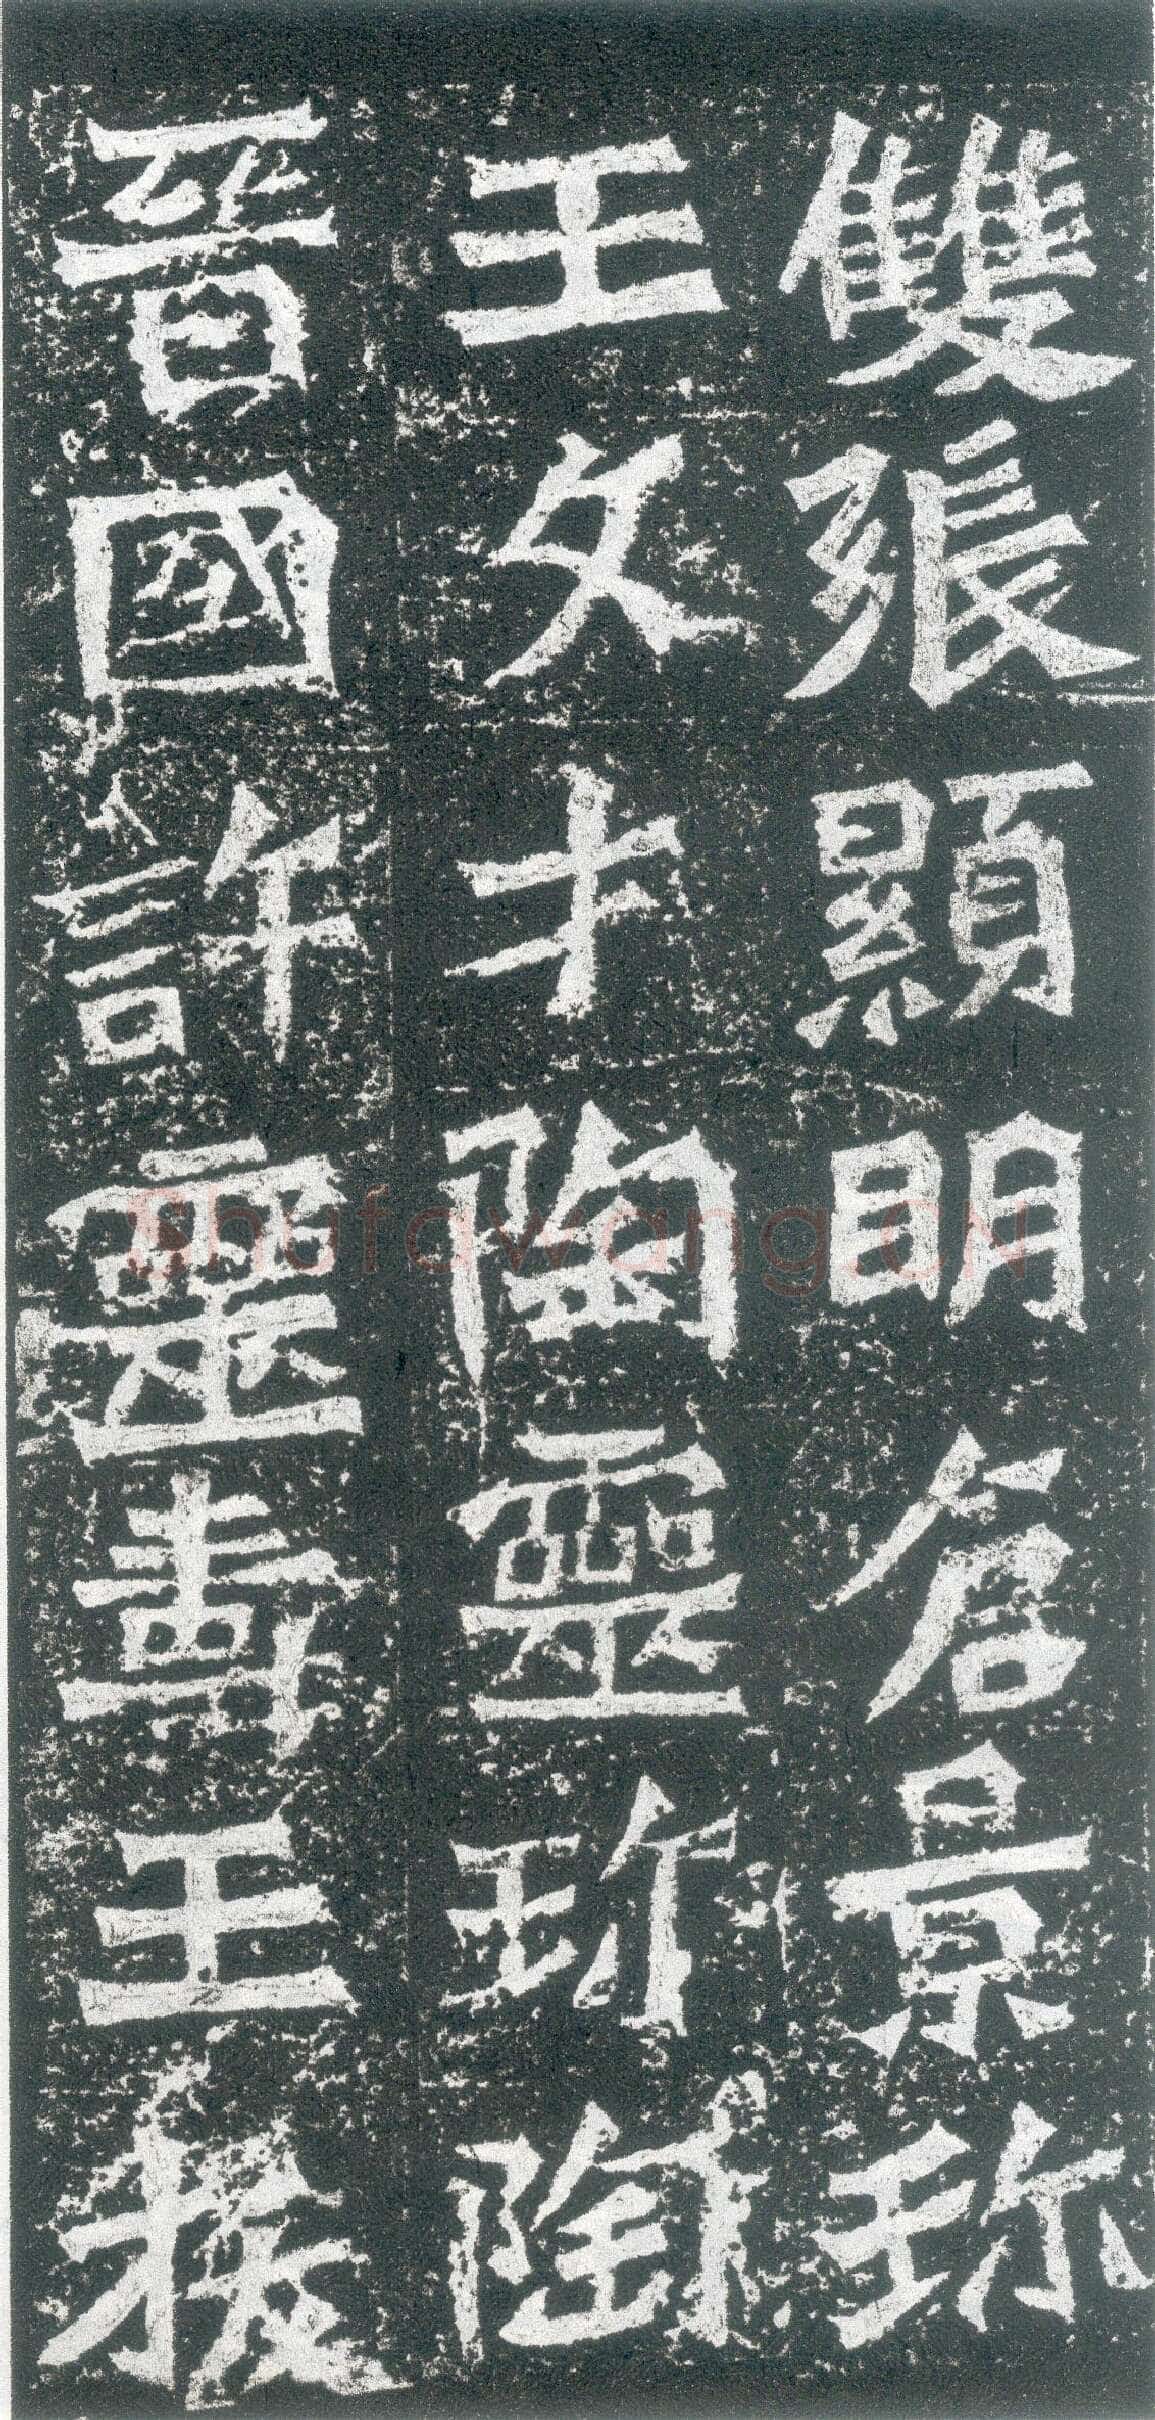 雙張顯明詹景珎
王文才陶靈珎陶
晉國許靈壽王援
Shufawang.CN